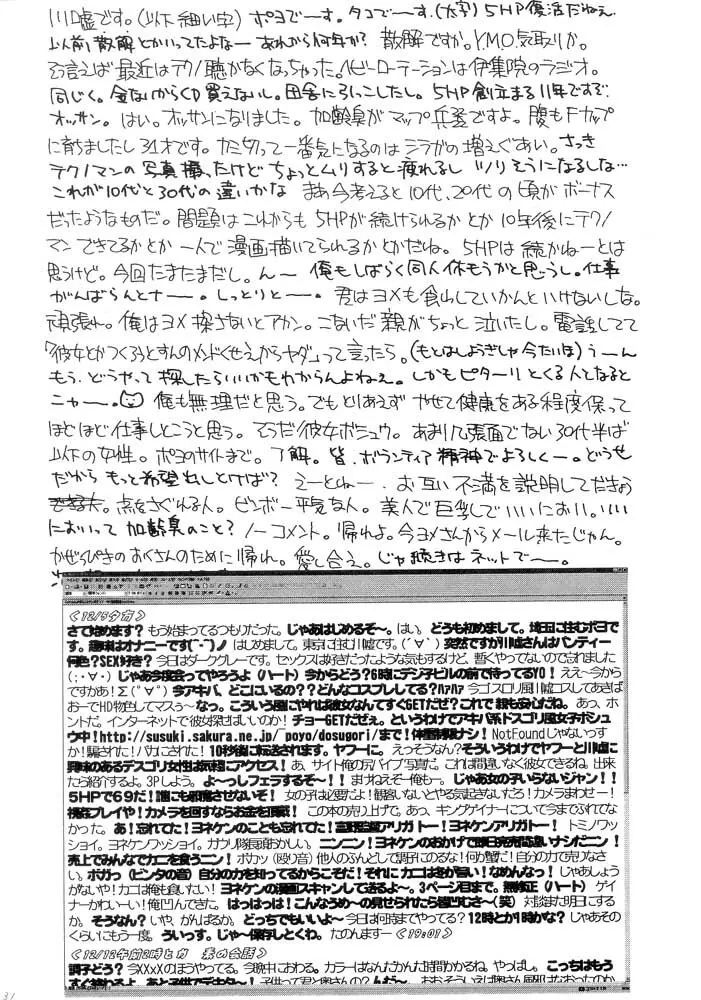 川嘘です。(以下細い字) ポヨでーす。タコでーす。(太字) 5HP復活だねえ
以前、散解とかいってたよなー あれから何年か？ 散解ですか。YMO気取りか。
そう言えば最近はテクノ聴かなくなっちゃった。ヘビーローテーションは伊集院のラジオ。
同じく。金ないからCD買えないし。田舎に引っこしたし。5HP創立まる11年ですぞ
オッサン。はい。オッサンになりました。加齢臭がマップ兵器ですよ。腹もFカップ
に育ちましたし31才です。カミ切って一番気になるのはシラガの増えぐあい。さっき
テクノマンの写真撮ったけどちょっとムリすると疲れるし ツリそうになるしな…
これが10代と30代の違いかな まあ今考えると10代、20代の頃がボーナス
だったようなものだ。問題はこれからも5HPが続けられるかとか10年後にテクノ
マンできてるかとか一人で漫画描いてられるかとかだね。5HPは続かねーとは
思うけど。今回たまたまだし。んー 俺もしばらく同人休もうかと思うし。仕事
がんばらんとナー。しっとりとー。君はヨメも食わしていかんといけないしな。
頑張れ。俺はヨメ探さないとアカン。こないだ親がちょっと泣いたし。電話してて
「彼女とかつくろうとすんのメンドくせえからヤダ」って言ったら。(もとはしようぎしゃ今たいほ) うーん
もう、どうやって探したらいいかもわからんよねえ。しかもピターリとくる人となると
ニャー。俺も無理だと思う。でもとりあえず やせて健康をある程度保って
ほどほど仕事しとこうと思う。そうだ彼女ボシュウ。あまり几張面でない30代半ば
以下の女性。ポヨのサイトまで。了解。皆、ボランティア精神でよろしくー。どうせ
だからもっと希望出しとけば？ えーとねー。お互い不満を説明してできう
点をさぐれる人。ビンボー平気な人。美人で巨乳でいいにおい。いい
においって加齢臭のこと？ ノーコメント。帰れよ。今ヨメさんからメール来たじゃん。
かぜっぴきのおくさんのために帰れ。愛し合え。じゃ続きはネットでー。
<12/5夕方>
さて始めます？ もう始まってるつもりだった。じゃあはじめるぞ～。はい。どうも初めまして。埼玉に住むポヨで
す。趣味はオナニーです(｀-´)ノ はじめまして。東京に住む川嘘です。(´∀`) 突然ですが川嘘さんはパンティー
何色？SEX好き？ 今日はダークグレーです。セックスは好きだったような気もするけど、暫くやってないので忘れました
(;・∀・) じゃあ今度会ってやろうよ（ハート） 今からどう？6時にデジ子ビルの前で待ってるYO！ ええ～今から
ですかあ！Σ(ﾟ∀ﾟ) 今アキバ、どこにいるの？？どんなコスプレしてる？ﾊｧﾊｧ 今ゴスロリ風川嘘コスしてあきば
おーでHD物色してマスぅ～なっ。こういう風にやれば彼女なんてすぐGETだぜ？これで親も安心だね。あっ、ホ
ントだ。インターネットで彼女探せばいいのか！ チョーGETだぜぇ。というわけでアキバ系ドスゴリ風女子ボシュ
ウ中！http://susuki.sakura.ne.jp/_poyo/dosugori/まで！体重制限ナシ！ NotFoundじゃないっす
か！騙された！バカにされた！ 10秒後に転送されます。ヤフーに。えっそうなん？そういうわけでヤフーと川嘘に
興味のあるデスゴリ女性は気軽にアクセス！ あ、サイト俺の尻バイブ写真だ。これは間違いなく彼女できるね。出来
たら紹介するよ。3Pしよう。よ～っしフェラするぞ～！！ まけねえぞ～俺も～。じゃあ女の子いらないジャン！！
5HPで69だ！誰にも邪魔させないぞ！ 女の子は必要だよ！観客いないとやる気起きないだろ！カメラまわせー！
視姦プレイや！カメラを回すならお金を頂戴！ この本の売り上げで。あっ、キングゲイナーについて今まで触れてな
かった。あ！忘れてた！ヨネケンのことも忘れてた！富野監督アリガトー！ヨネケンアリガトー！ トミノワッ
ショイ。ヨネケンワッショイ。カナリ隊長恥ずかしい。ニンニン！ヨネケンのおかげで即日完売間違いナシだニン！
売上でみんなでカニを食うニン！ ボカッ（殴り音）他人のふんどしで調子にのるな！何が蟹だ！自分の力で売りなさ
い。ボガッ（ビンタの音）自分の力を知ってるからこそだ！それにカニは冬が旨い！なめんなっ！ じゃあしょう
がないや！カニは俺も食いたい！ヨネケンの漫画スキャンして送るよ～。3ページ目まで。無修正（ハート） ゲイ
ナーかわいーい！俺凹んできた。はっはっは！こんなうめ～の見せられたら皆凹むさ～（笑） 対談まだ明日にする
か。そうなん？いや、がんばるか。どっちでもいいよ～ 今日は何時までやってる？12時とか1時かな？ じゃあその
くらいにもう一度。ういっす。じゃ～保存しとくわ。たのんますー <19:01>
<12/12午前2時とか 素の会話>
調子どう？ 今XXXXのほうやってる。今晩中におわる。カラーはなんだかんだ時間かかるね、やっぱし。こっちはもう
31